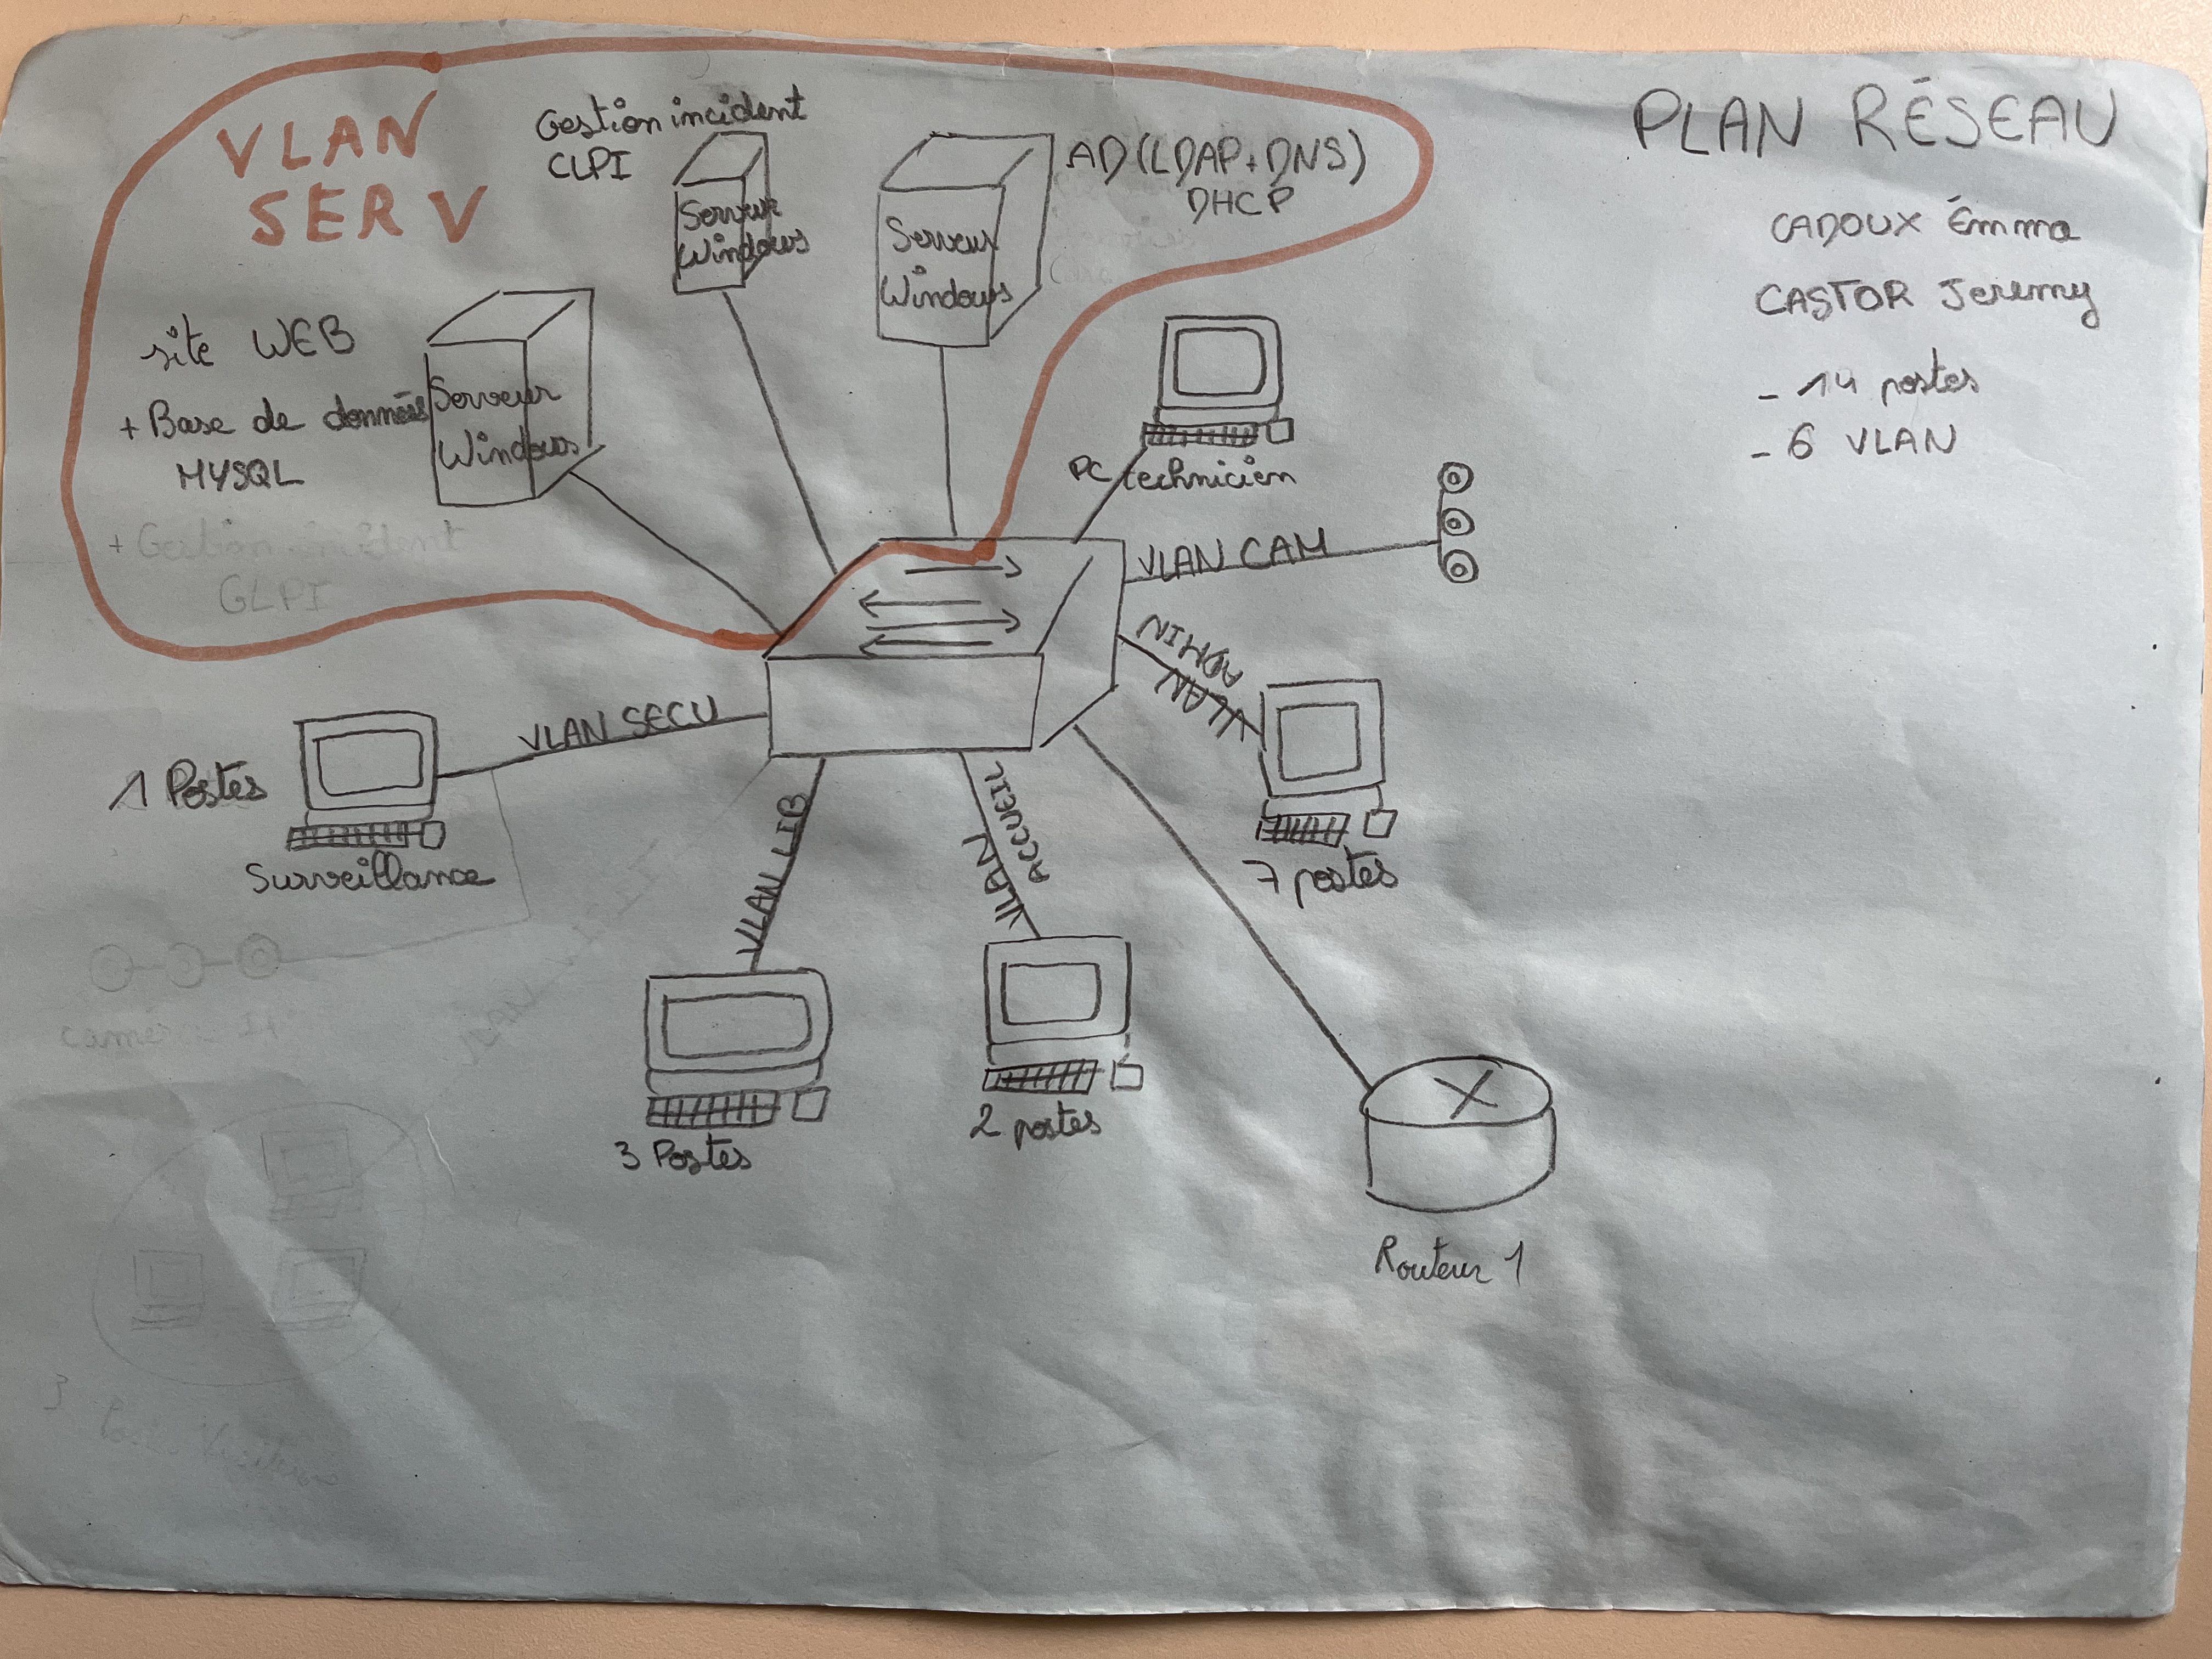 PLAN RÉSEAU
CADOUX Émma
CASTOR Jeremy
- 14 postes
- 6 VLAN
VLAN
SERV
Gestion incident
CLPI
Serveur
Windows
AD (LDAP+DNS)
DHCP
Serveur
Windows
site WEB
+ Base de données
MYSQL
Serveur
Windows
+ Gestion incident
GLPI
PC technicien
VLAN CAM
VLAN
ADMIN
7 postes
VLAN SECU
1 Postes
Surveillance
VLAN LIB
3 Postes
VLAN
ACCUEIL
2 postes
Routeur 1
caméra IP
3